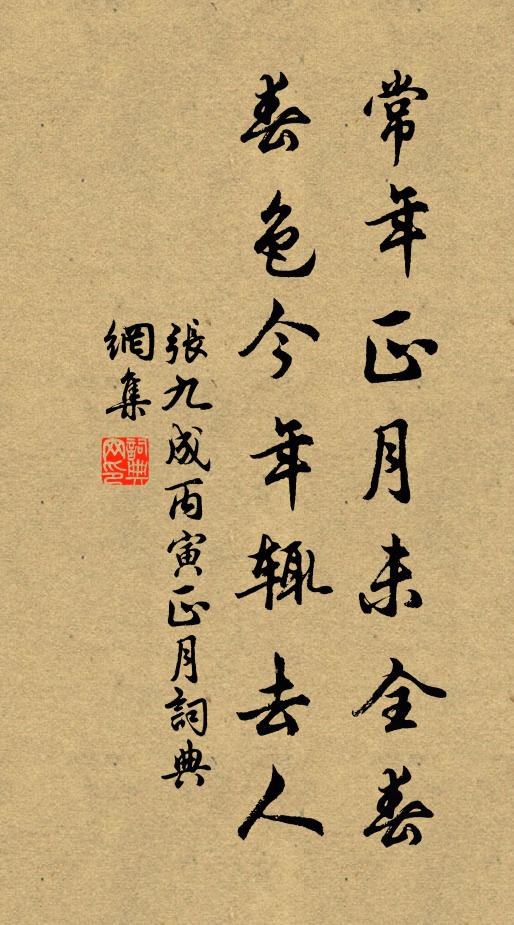 常年正月未全春
春色今年辄去人
張九成丙寅正月詞典
網集
詞典网印